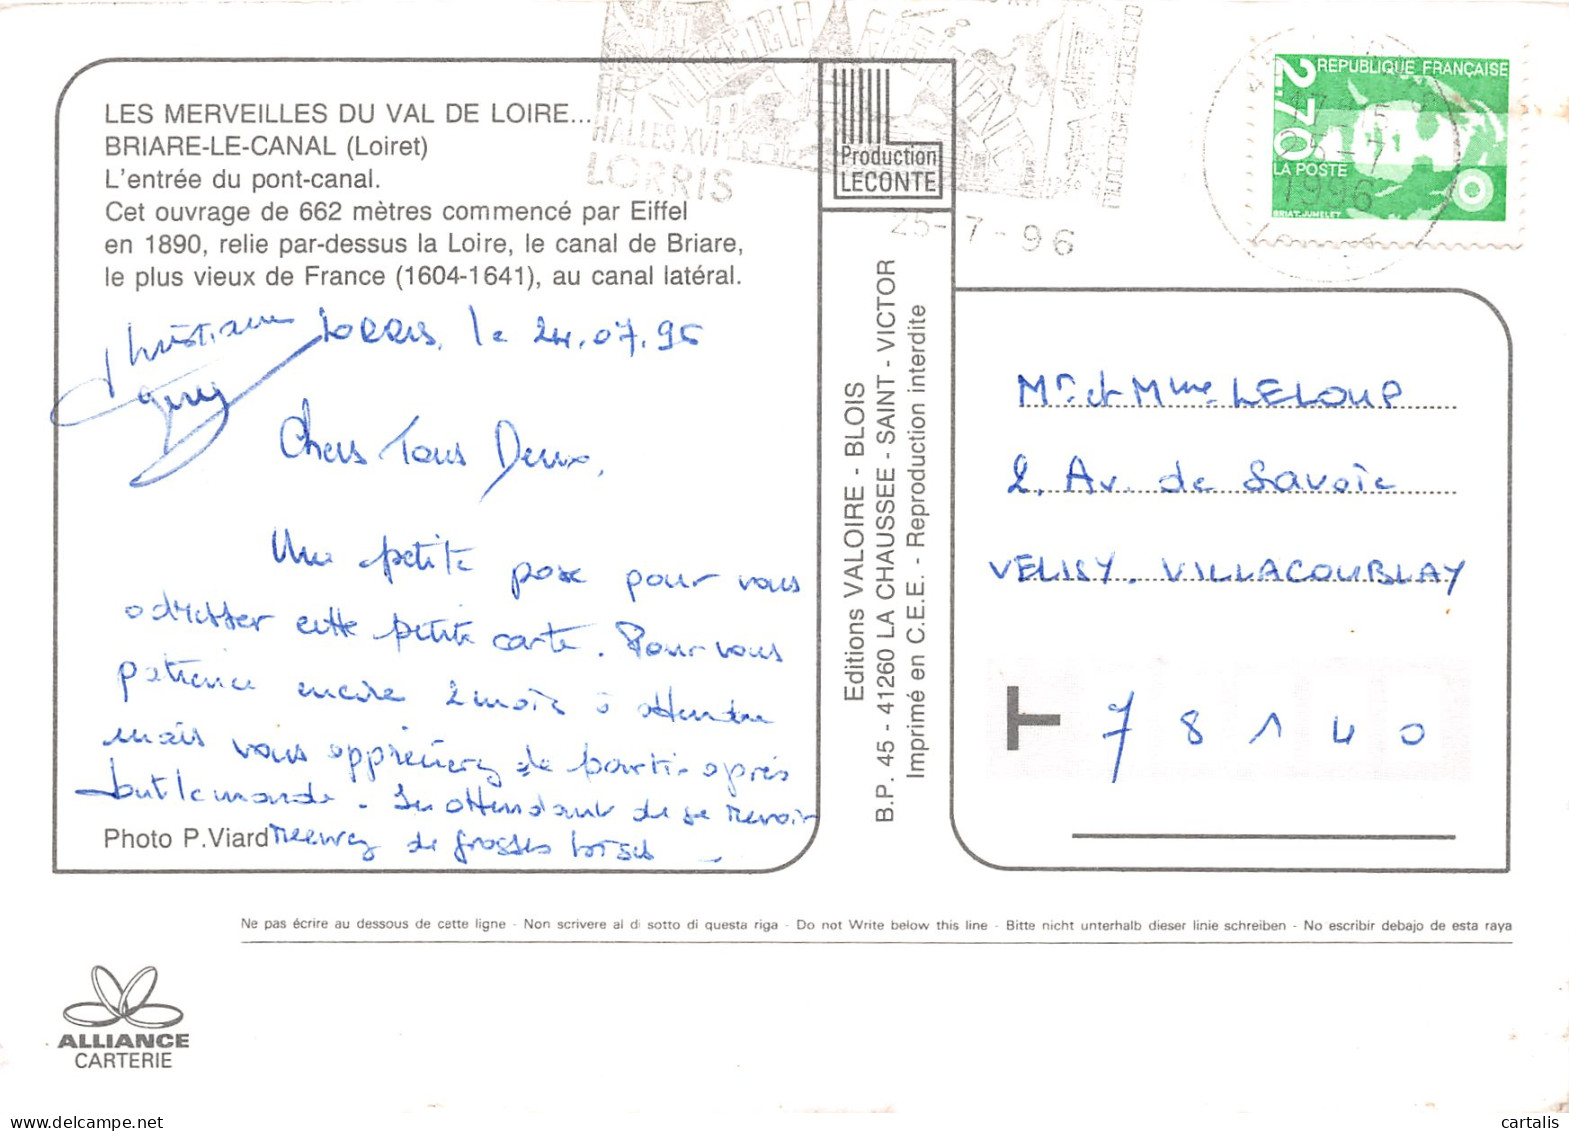 LES MERVEILLES DU VAL DE LOIRE...
BRIARE-LE-CANAL (Loiret)
L'entrée du pont-canal.
Cet ouvrage de 662 mètres commencé par Eiffel
en 1890, relie par-dessus la Loire, le canal de Briare,
le plus vieux de France (1604-1641), au canal latéral.
Christiane
Lorris, le 24.07.96
Chers Tous Deux,
Une petite pose pour vous
adresser cette petite carte. Pour vous
patience encore 2 mois à attendre
mais vous apprécierez de partir après
tout le monde. En attendant de se revoir
Photo P.Viard recevez de grosses bises
HALLES XVI
LORRIS
MUSEE DE LA RESISTANCE
25-7-96
Production
LECONTE
Editions VALOIRE - BLOIS
B.P. 45 - 41260 LA CHAUSSEE - SAINT - VICTOR
Imprimé en C.E.E. - Reproduction interdite
REPUBLIQUE FRANÇAISE
2,70
LA POSTE
BRIAT-JUMELET
1996
Mr et Mme LELOUP
2, Av. de Savoie
VELISY. VILLACOUBLAY
78140
Ne pas écrire au dessous de cette ligne - Non scrivere al di sotto di questa riga - Do not Write below this line - Bitte nicht unterhalb dieser linie schreiben - No escribir debajo de esta raya
ALLIANCE
CARTERIE
cartalis